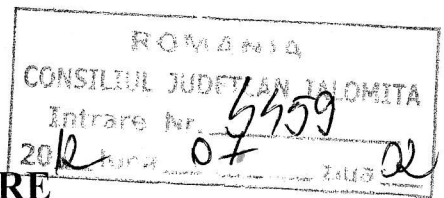 ROMANIA
CONSILIUL JUDEȚEAN IALOMIȚA
Intrare Nr. 5459
2012 luna 07 ziua 02
RE